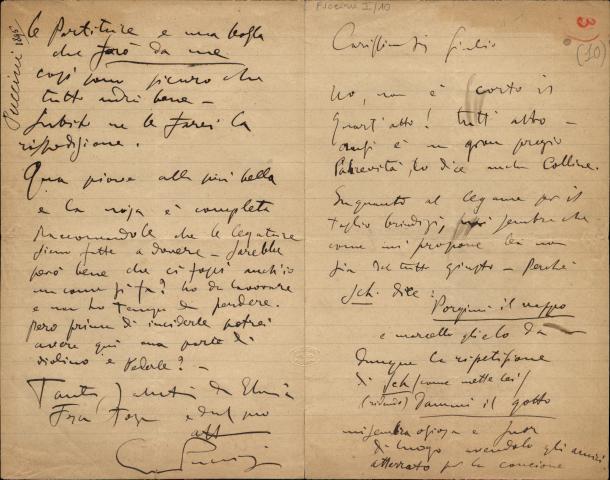 Puccini I/10
3
(10)
Carissimo Sig Giulio
No, non è corto il
quart'atto! tutt'altro –
anzi è un gran pregio
la brevità, lo dice anche Colline.
In quanto al legame per il
taglio brindisi, sembra che
come mi propone lei non
sia del tutto giusto – Perchè
Sch. dice:
Porgimi il nappo
e Marcello glielo dà –
dunque la ripetizione
di Sch (come mette lei)
Dammi il gotto
mi sembra oziosa e fuor
di luogo avendolo gli amici
atterrato per la canzone
Puccini 1895
le partiture e una bozza
che farò da me
così sono sicuro che
tutto andrà bene –
Subito ne le farei la
rispedizione.
Qua piove alla più bella
e la noja è completa
Raccomandole che le legature
siano fatte a dovere – Sarebbe
però bene che ci fossi anch'io
ma come si fa? ho da lavorare
e non ho tempo da perdere.
però prima di inciderle potrei
avere qui una parte di
violino e Pedale? –
Tanti saluti da Elvira
Fosca Tonio e dal suo
aff
G Puccini